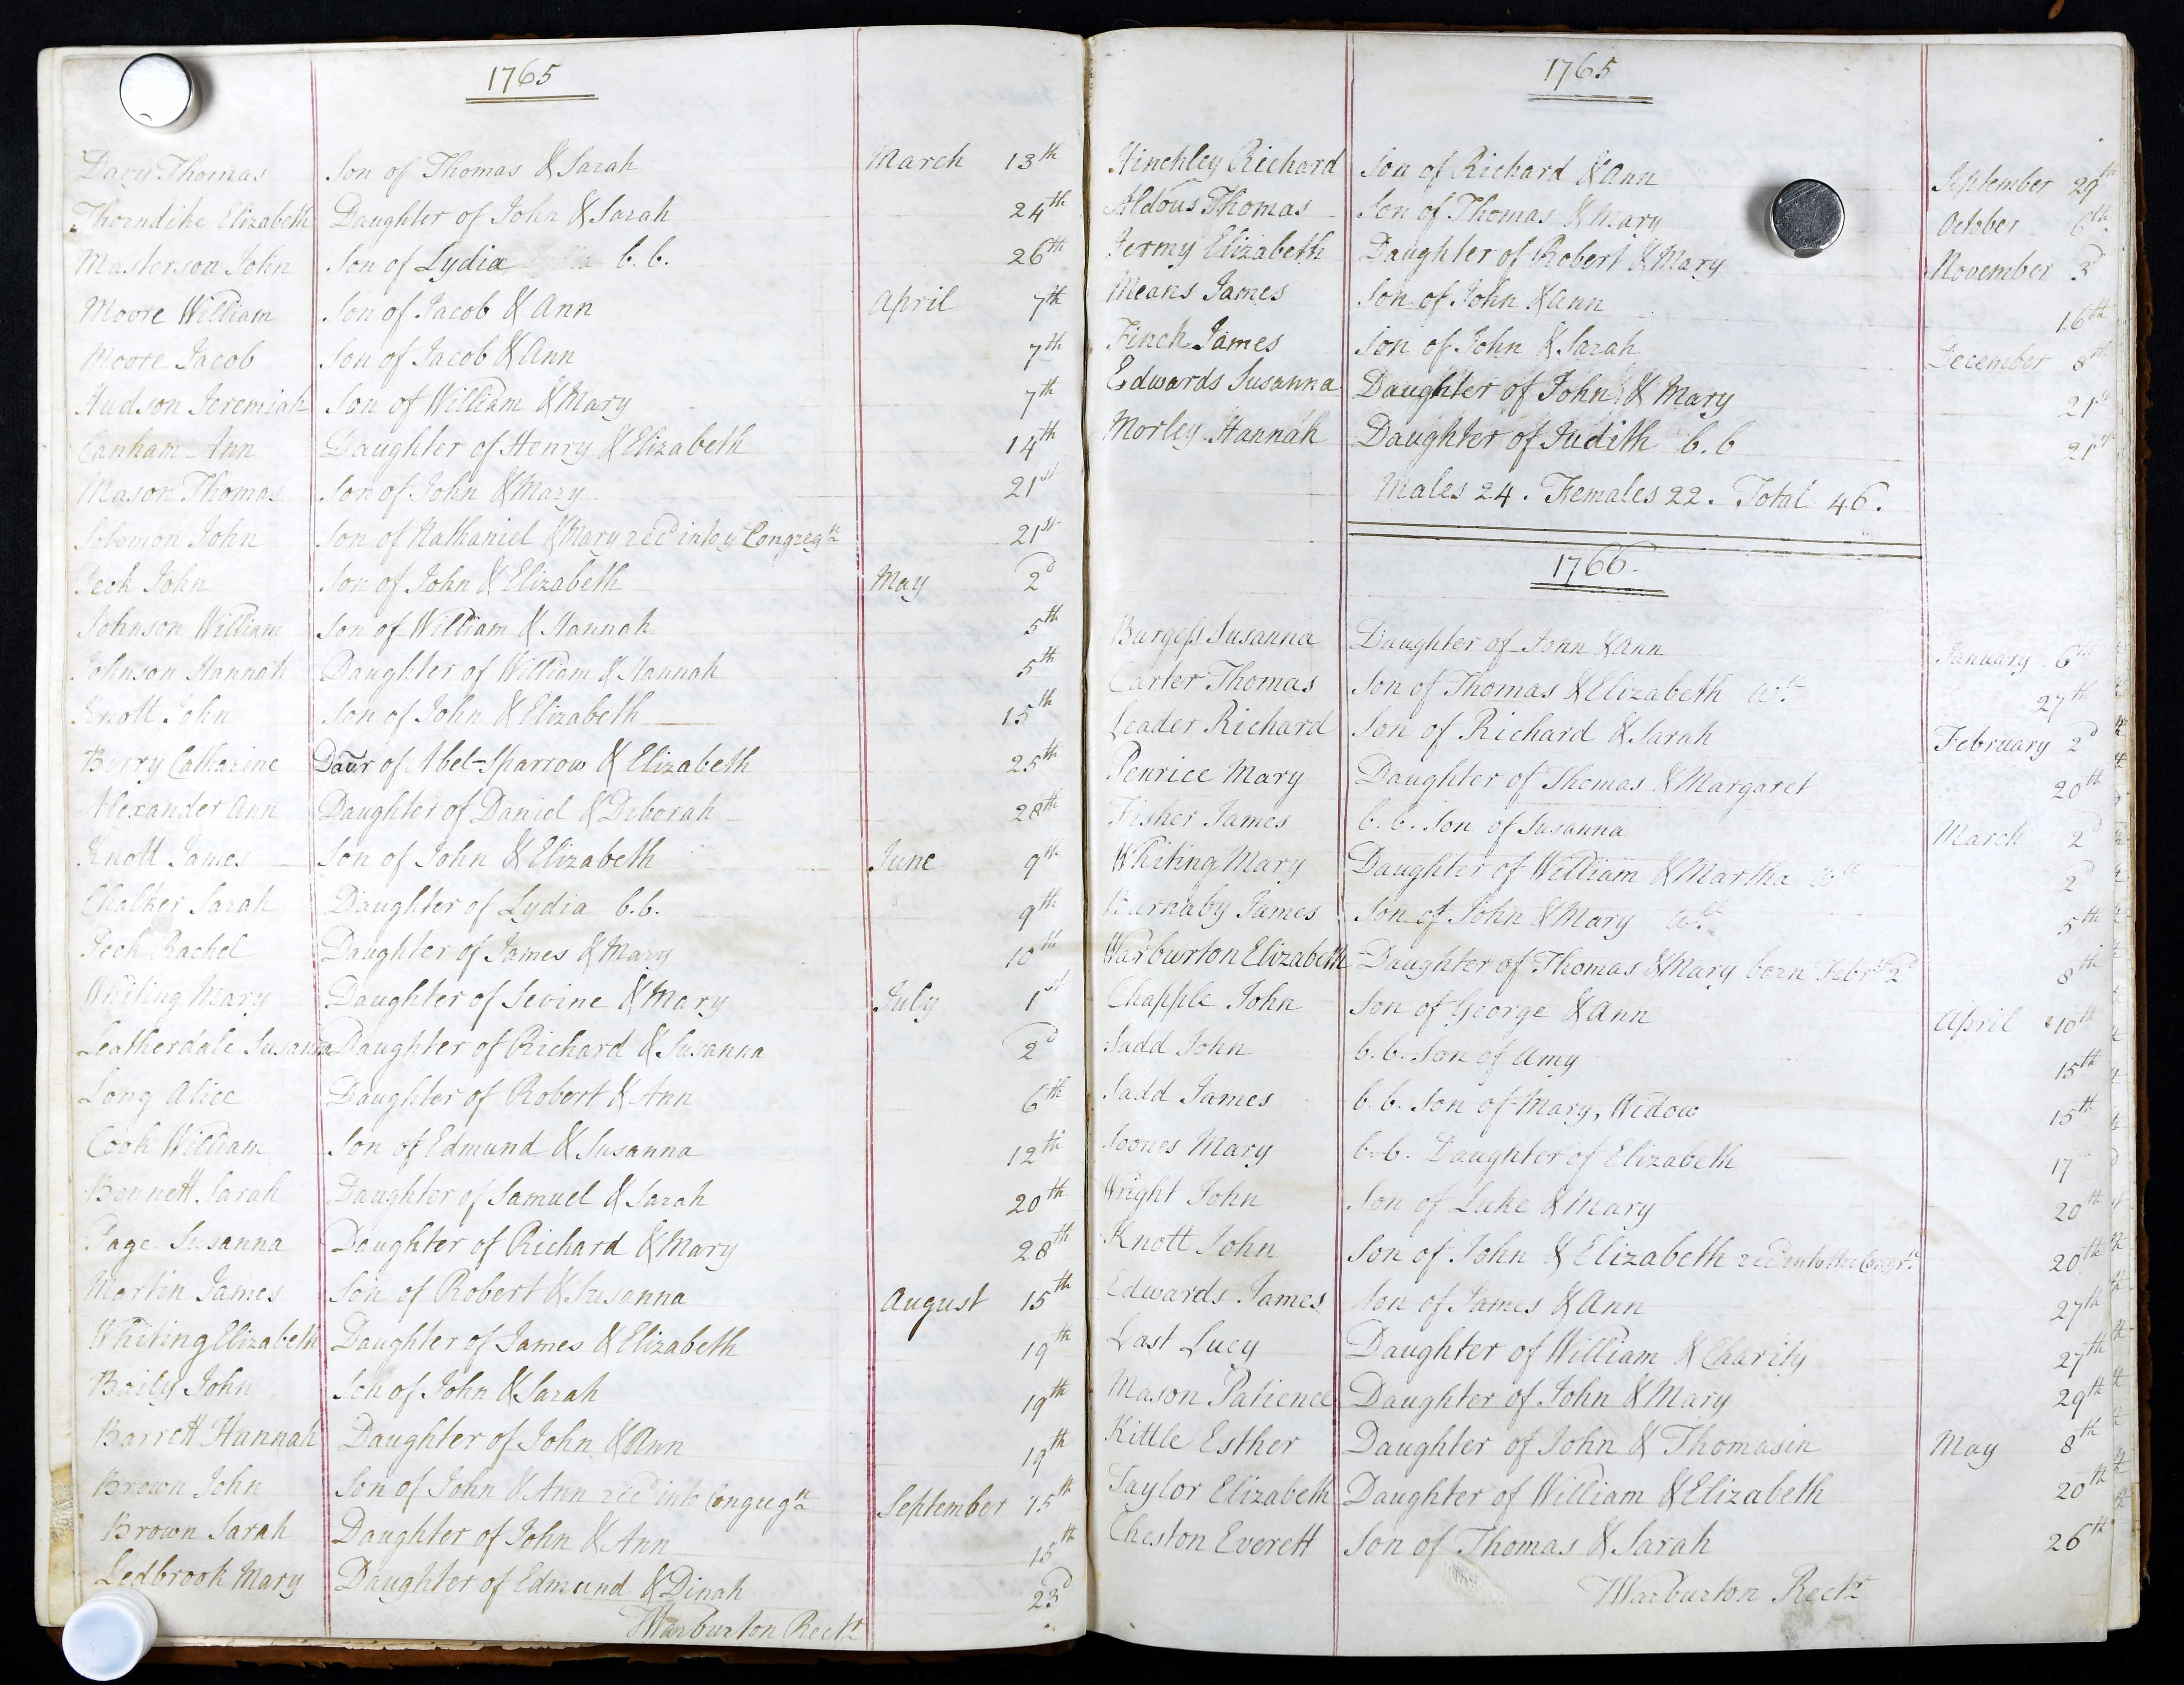 1765
Dacy Thomas Son of Thomas & Sarah March 13th
Thorndike Elizabeth Daughter of John & Sarah 24th
Masterson John Son of Lydia b.b. 26th
Moore William Son of Jacob & Ann April 7th
Moore Jacob Son of Jacob & Ann 7th
Hudson Jeremiah Son of William & Mary 7th
Canham Ann Daughter of Henry & Elizabeth 14th
Mason Thomas Son of John & Mary 21st
Solomon John Son of Nathaniel & Mary recd into y Congregn 21st
Peck John Son of John & Elizabeth May 2d
Johnson William Son of William & Hannah 5th
Johnson Hannah Daughter of William & Hannah 5th
Knott John Son of John & Elizabeth 15th
Berry Catharine Daur of Abel-Sparrow & Elizabeth 25th
Alexander Ann Daughter of Daniel & Deborah 28th
Knott James Son of John & Elizabeth June 9th
Chalker Sarah Daughter of Lydia b.b. 9th
Peck Rachel Daughter of James & Mary 10th
Whiting Mary Daughter of Sevine & Mary July 1st
Leatherdale Susanna Daughter of Richard & Susanna 2d
Long Alice Daughter of Robert & Ann 6th
Cook William Son of Edmund & Susanna 12th
Bennett Sarah Daughter of Samuel & Sarah 20th
Page Susanna Daughter of Richard & Mary 28th
Martin James Son of Robert & Susanna August 15th
Whiting Elizabeth Daughter of James & Elizabeth 19th
Baily John Son of John & Sarah 19th
Barrett Hannah Daughter of John & Ann 19th
Brown John Son of John & Ann recd into Congregn September 15th
Brown Sarah Daughter of John & Ann 15th
Ledbrook Mary Daughter of Edmund & Dinah 23d
TWarburton Rectr
1765
Hinchley Richard Son of Richard & Ann September 29th
Aldous Thomas Son of Thomas & Mary October 6th
Jermy Elizabeth Daughter of Robert & Mary November 3d
Means James Son of John & Ann 16th
Finch James Son of John & Sarah December 8th
Edwards Susanna Daughter of John & Mary 21st
Morley Hannah Daughter of Judith b.b 21st
Males 24. Females 22. Total 46.
1766.
Burgess Susanna Daughter of John & Ann January 6th
Carter Thomas Son of Thomas & Elizabeth 27th
Leader Richard Son of Richard & Sarah February 2d
Penrice Mary Daughter of Thomas & Margaret 20th
Fisher James b.b. Son of Susanna March 2d
Whiting Mary Daughter of William & Martha 2d
Burnaby James Son of John & Mary 5th
Warburton Elizabeth Daughter of Thomas & Mary born Febry 2d 8th
Chapple John Son of George & Ann April 10th
Sadd John b.b. Son of Amy 15th
Sadd James b.b. Son of Mary, Widow 15th
Soones Mary b.b. Daughter of Elizabeth 17th
Wright John Son of Luke & Mary 20th
Knott John Son of John & Elizabeth recd into the Congrn 20th
Edwards James Son of James & Ann 27th
Last Lucy Daughter of William & Charity 27th
Mason Patience Daughter of John & Mary 29th
Kittle Esther Daughter of John & Thomasin May 8th
Taylor Elizabeth Daughter of William & Elizabeth 20th
Cheston Everett Son of Thomas & Sarah 26th
TWarburton Rectr